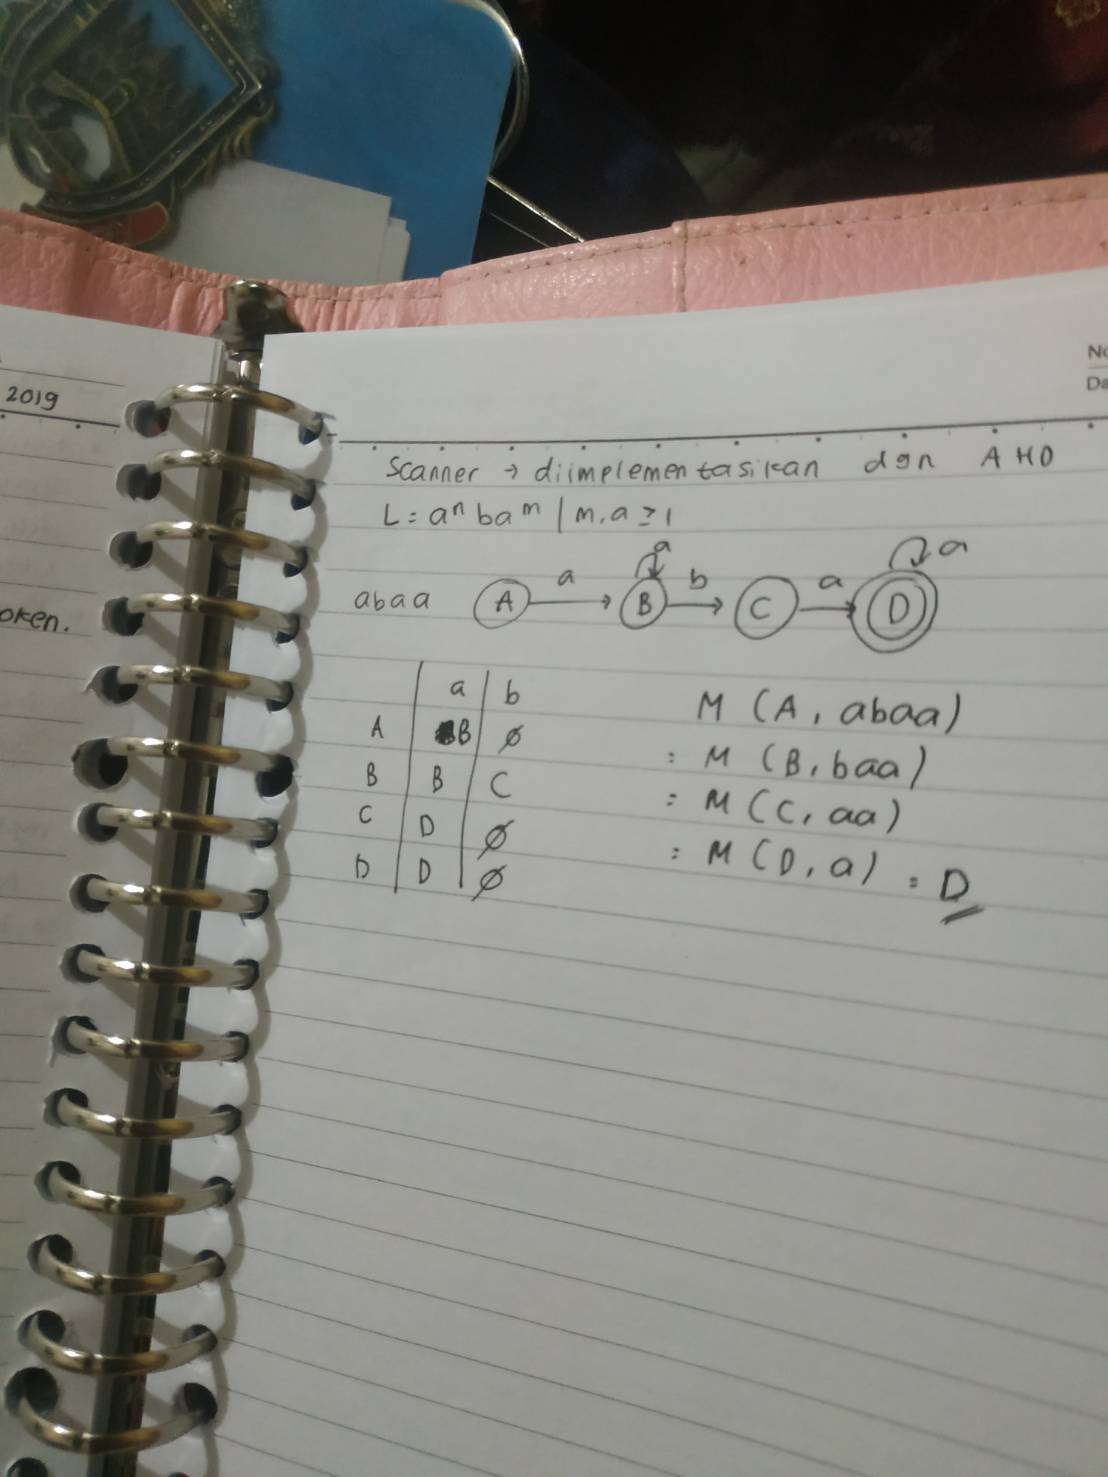 2019
oken.
No
Da
Scanner → diimplementasikan dgn AHD
L = aⁿ baᵐ | m, a ≥ 1
abaa A a B a b C a D a
a b
A B ∅
B B C
C D ∅
D D ∅
M (A, abaa)
= M (B, baa)
= M (C, aa)
= M (D, a) = D